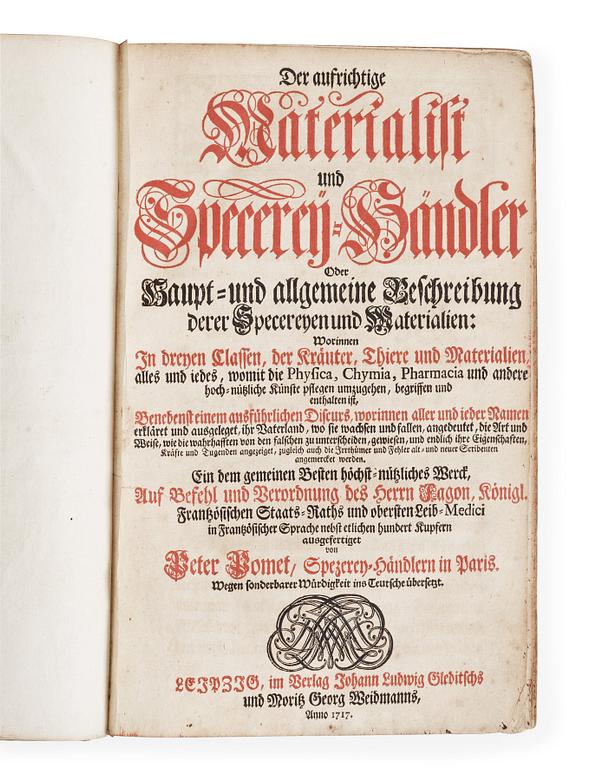 Der aufrichtige
Materialist
und
Specereÿ-Händler
Oder
Haupt-und allgemeine Beschreibung
derer Specereyen und Materialien:
Worinnen
In dreyen Classen, der Kräuter, Thiere und Materialien,
alles und iedes, womit die Physica, Chymia, Pharmacia und andere
hoch-nützliche Künste pflegen umzugehen, begriffen und
enthalten ist,
Benebenst einem ausführlichen Discurs, worinnen aller und ieder Namen
erkläret und ausgeleget, ihr Vaterland, wo sie wachsen und fallen, angedeutet, die Art und
Weise, wie die wahrhafften von den falschen zu unterscheiden, gewiesen, und endlich ihre Eigenschaften,
Kräfte und Tugenden angezeiget, zugleich auch die Irrthümer und Fehler alt- und neuer Scribenten
angemercket werden.
Ein dem gemeinen Besten höchst-nützliches Werck,
Auf Befehl und Verordnung des Herrn Fagon, Königl.
Frantzösischen Staats-Raths und obersten Leib-Medici
in Frantzösischer Sprache nebst etlichen hundert Kupfern
ausgefertiget
von
Peter Pomet, Spezerey-Händlern in Paris.
Wegen sonderbarer Würdigkeit ins Teutsche übersetzt.
LEIPZIG, im Verlag Johann Ludwig Gleditschs
und Moritz Georg Weidmanns,
Anno 1717.